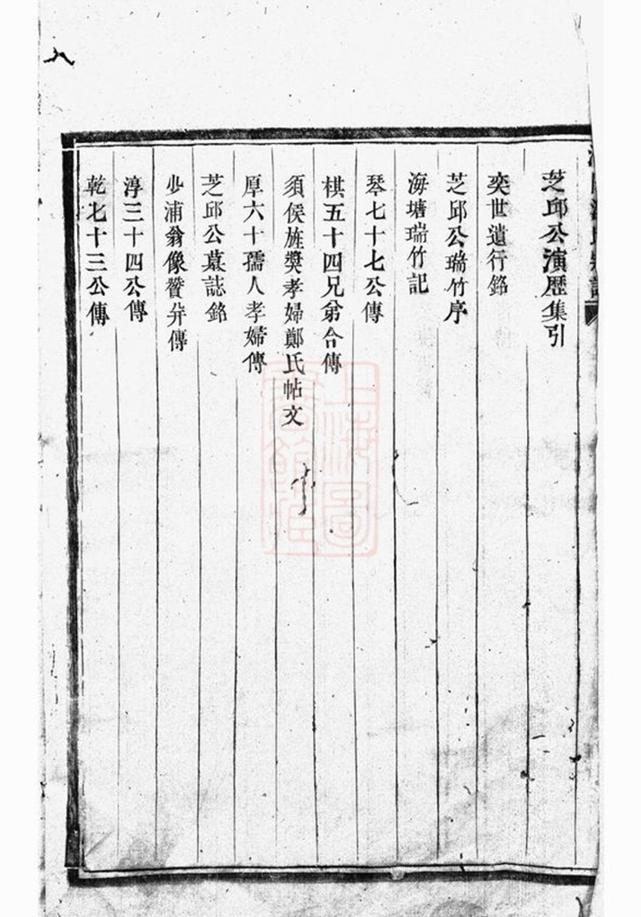 芝邱公演歷集引
奕世遺行銘
芝邱公瑞竹序
海塘瑞竹記
琴七十七公傳
棋五十四兄弟合傳
須侯旌獎孝婦鄭氏帖文
厚六十孺人孝婦傳
芝邱公墓誌銘
少浦翁像贊并傳
淳三十四公傳
乾七十三公傳